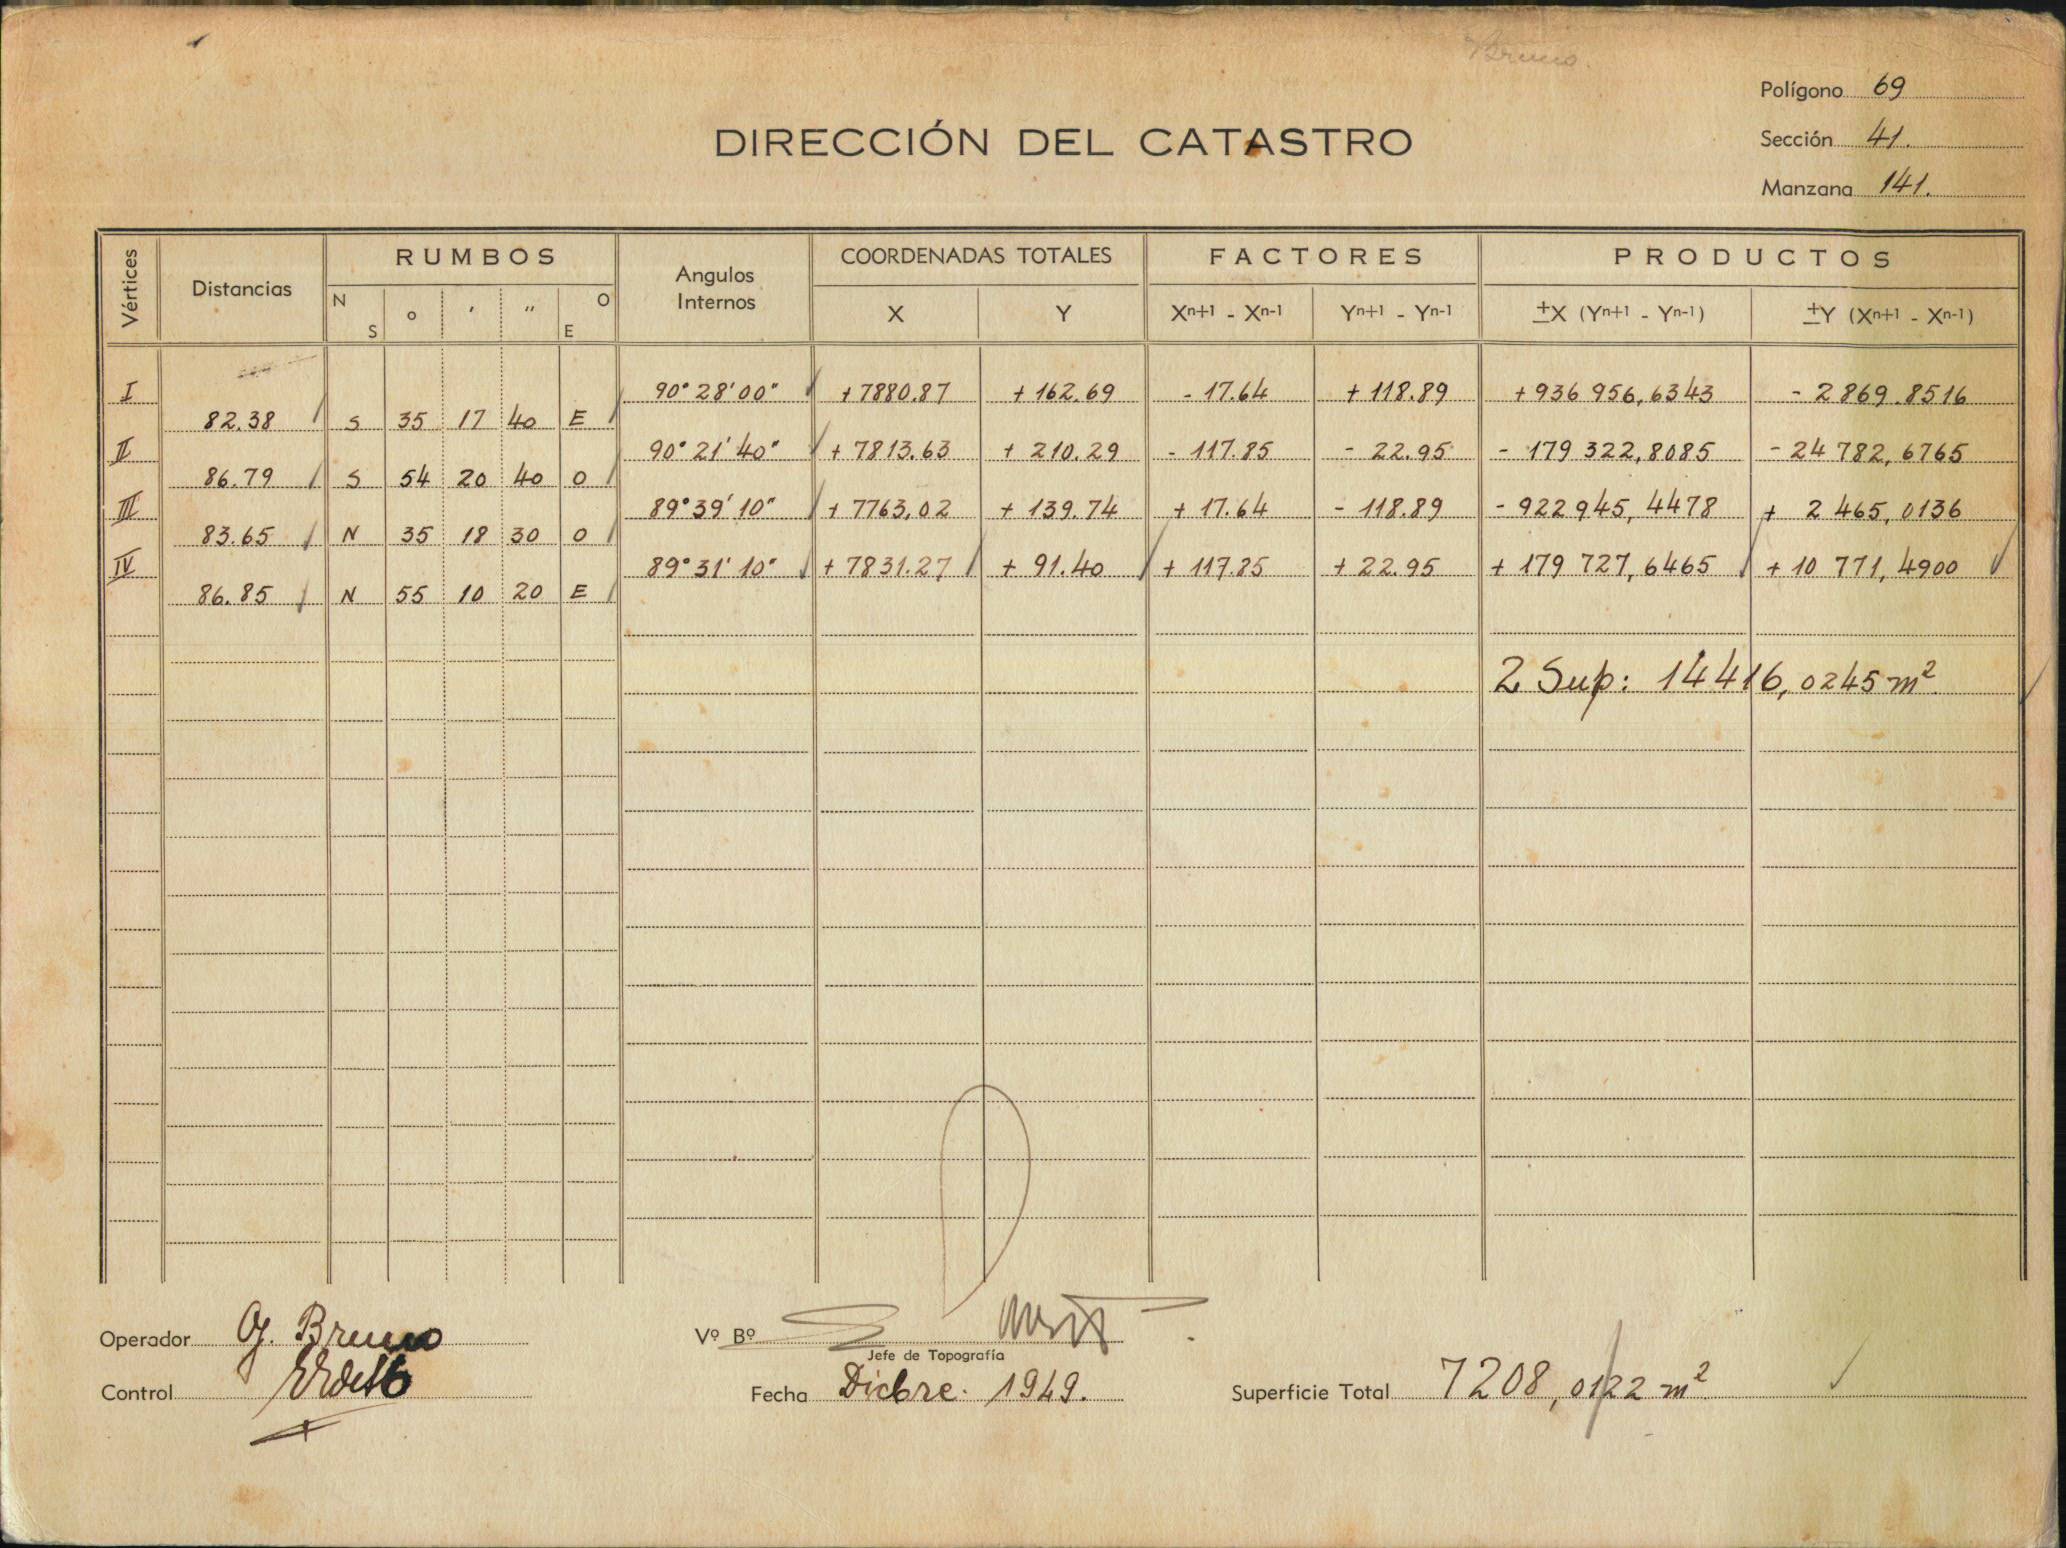 Bruno.
Polígono 69
DIRECCIÓN DEL CATASTRO
Sección 41.
Manzana 141.
Vértices Distancias RUMBOS Angulos Internos COORDENADAS TOTALES FACTORES PRODUCTOS
N S o ' '' O E X Y Xn+1 - Xn-1 Yn+1 - Yn-1 ±X (Yn+1 - Yn-1) ±Y (Xn+1 - Xn-1)
I 90° 28' 00" +7880.87 +162.69 -17.64 +118.89 +936 956,6343 -2 869.8516
82.38 S 35 17 40 E
II 90° 21' 40" +7813.63 +210.29 -117.85 -22.95 -179 322,8085 -24 782,6765
86.79 S 54 20 40 O
III 89° 39' 10" +7763,02 +139.74 +17.64 -118.89 -922 945,4478 +2 465,0136
83.65 N 35 18 30 O
IV 89° 31' 10" +7831.27 +91.40 +117.85 +22.95 +179 727,6465 +10 771,4900
86.85 N 55 10 20 E
2 Sup: 14416,0245 m²
Operador Bruno Vº Bº
Jefe de Topografía
Control Fecha Dicbre. 1949. Superficie Total 7208,0122 m²